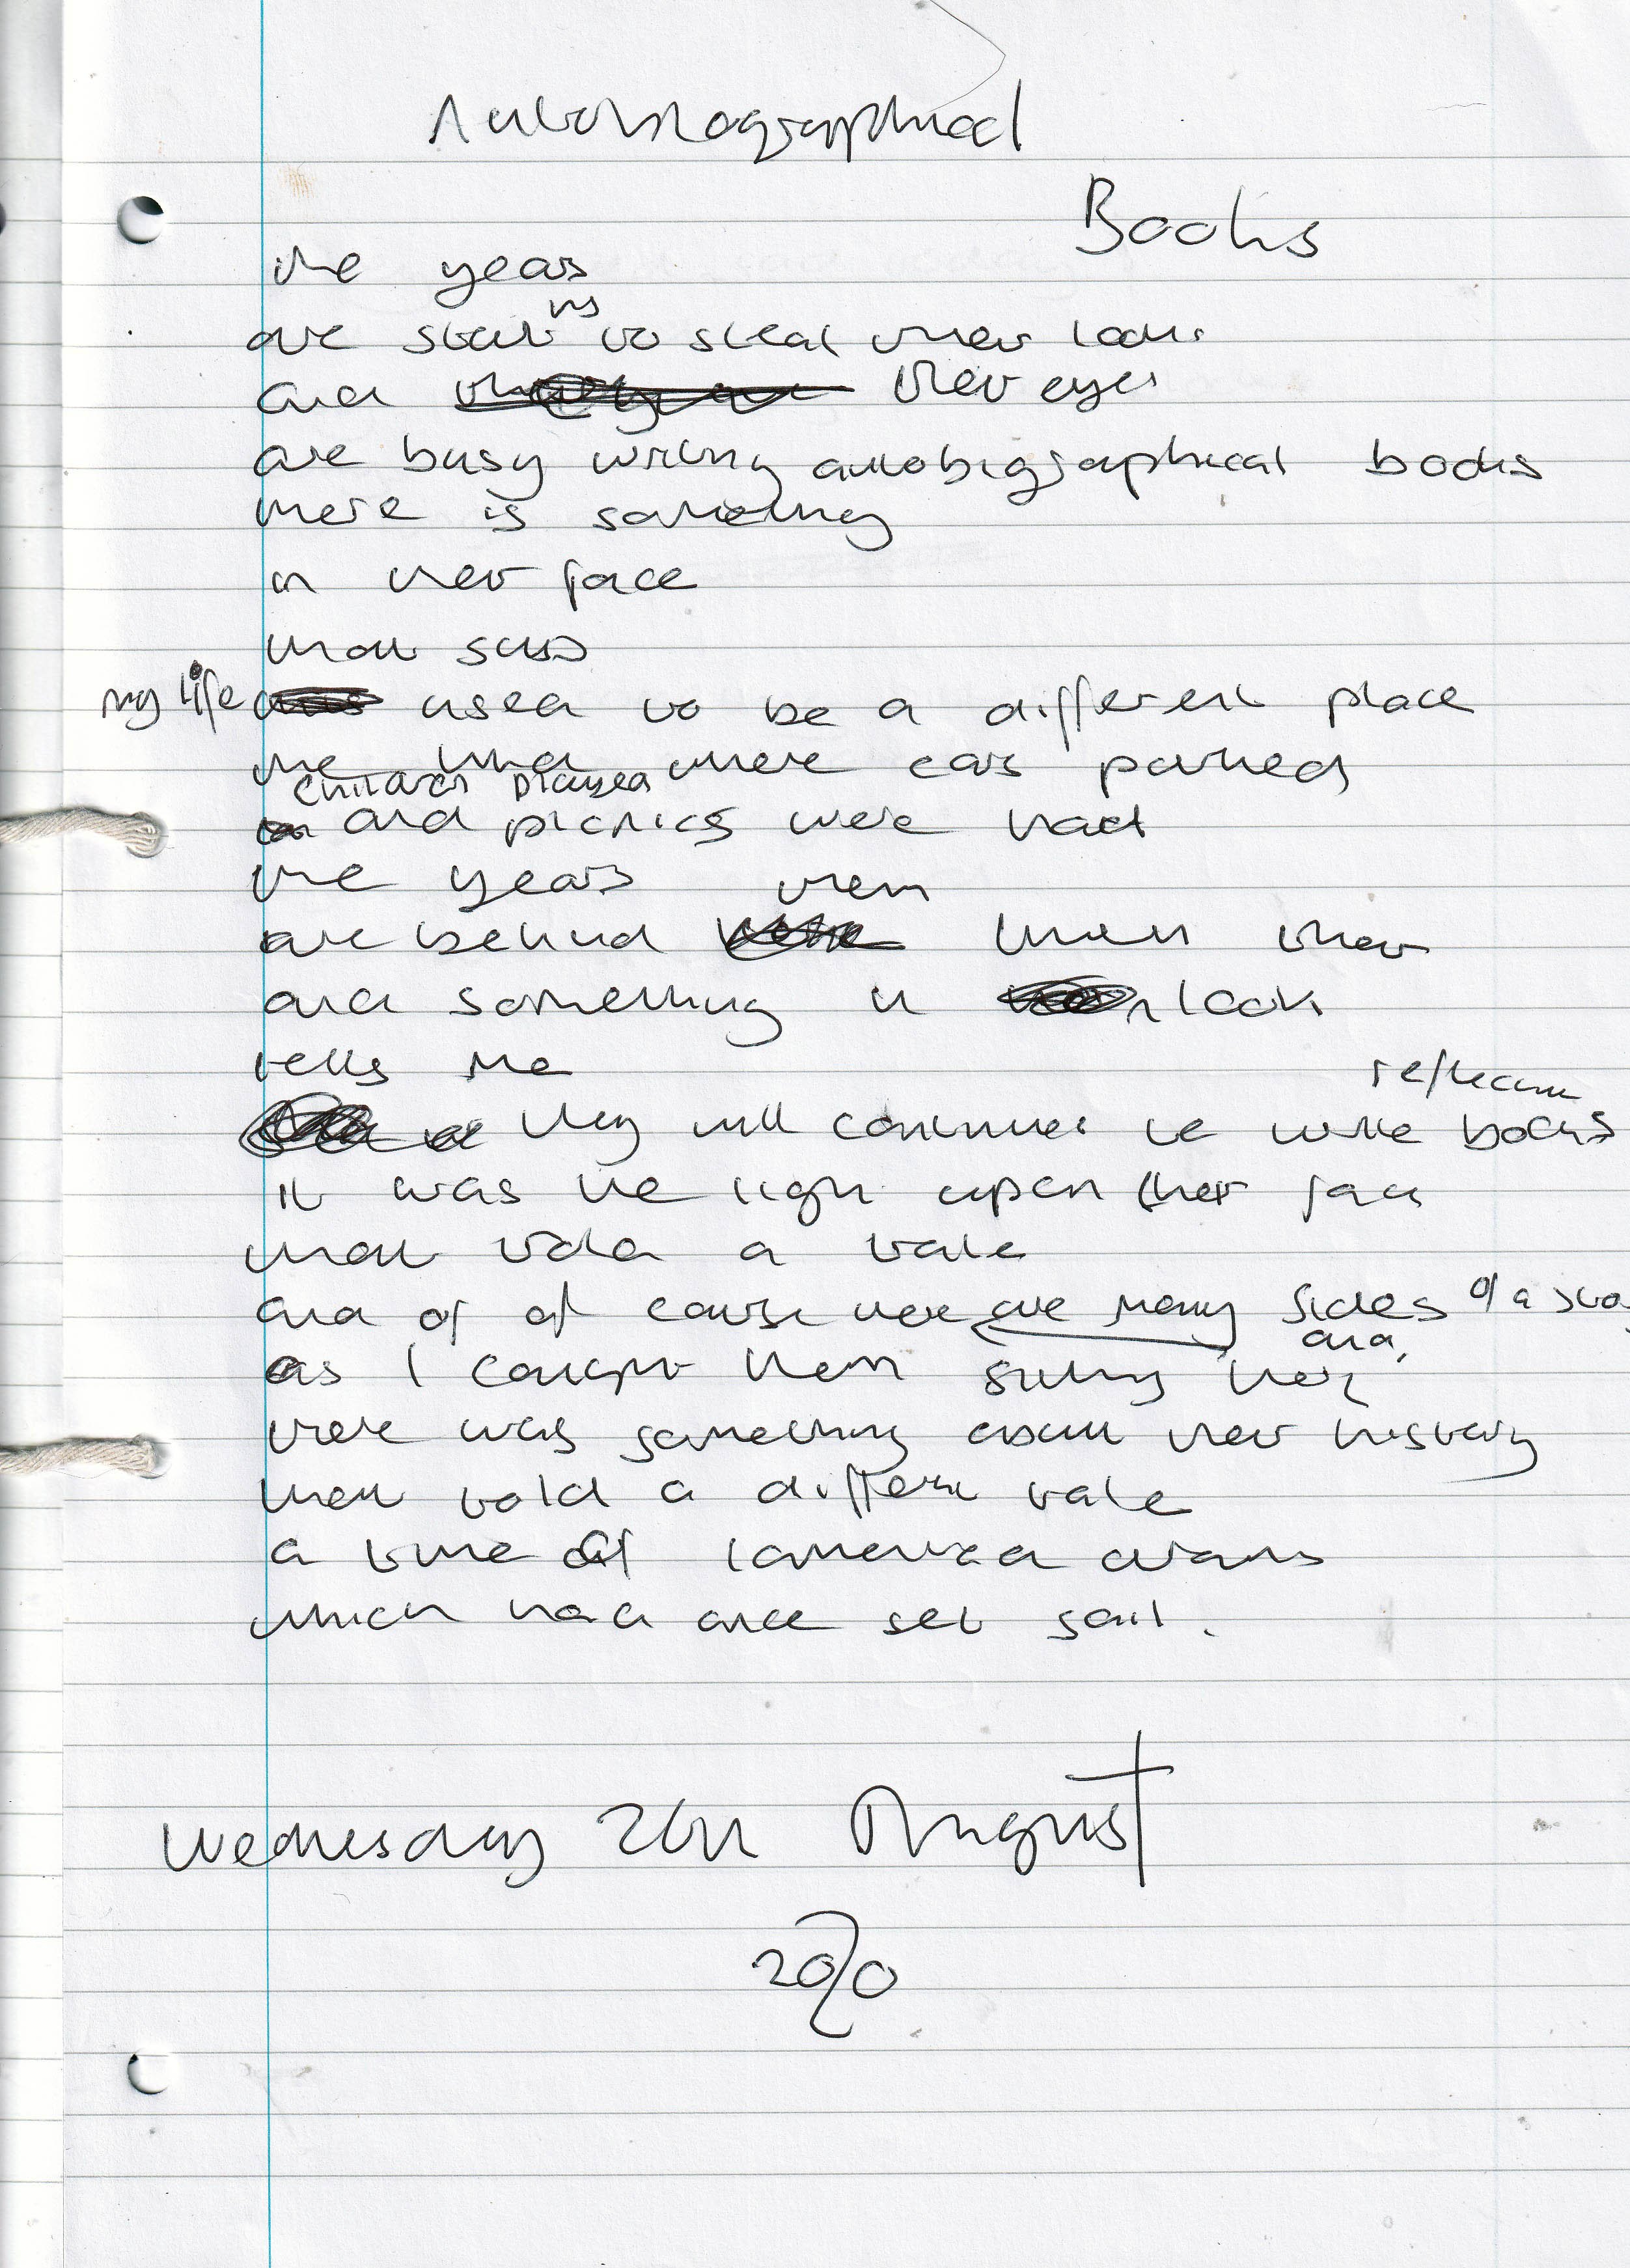 Autobiographical
Books
the years
are starting to steal their looks
and their eyes
are busy writing autobiographical books
there is something
in their face
that says
my life used to be a different place
the kind where cars parked
children played
and picnics were had
the years
are behind them
and something in look
tells me
they will continue to write reflective books
it was the light upon their face
that told a tale
and of of course there are many sides of a story
as I caught them sitting there, and
there was something about their history
that told a different tale
a time of
which had once set sail.
Wednesday 26th August
2020